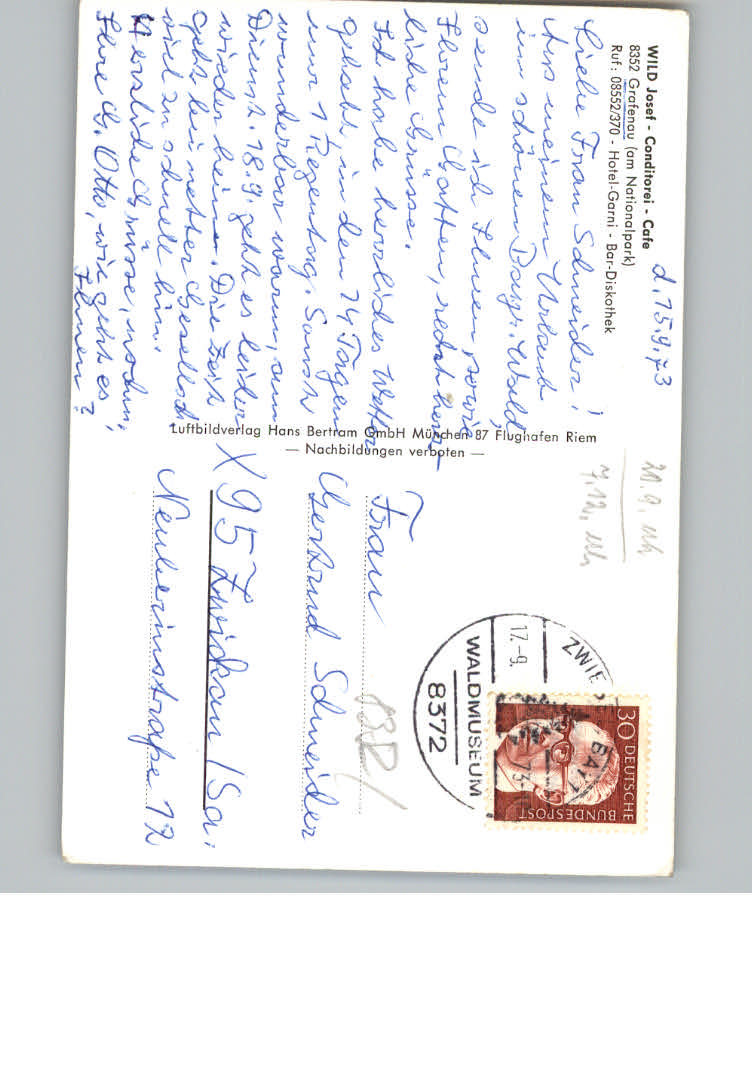 WILD Josef - Conditorei - Cafe
8352 Grafenau (am Nationalpark)
Ruf: 08552/370 - Hotel-Garni - Bar-Diskothek
d. 15.9.73
Liebe Frau Schneider!
Aus meinem Urlaub
im schönen Bayr. Wald,
sende ich Ihnen, sowie
Ihrem Gatten, recht herz-
liche Grüsse.
Ich habe herrliches Wetter
gehabt, in den 14 Tagen
nur 1 Regentag. Sonst
wunderbar warm, am
Dienst. 18.9. geht es leider
wieder heim. Die Zeit
geht bei netter Gesellsch.
viel zu schnell hin.
Herzliche Grüsse, nochm.
Ihre G. Otto, wie geht es
Ihnen?
Luftbildverlag Hans Bertram GmbH München 87 Flughafen Riem
— Nachbildungen verboten —
21.9.
7.12.
Frau
Gertrud Schneider
X 95 Zwickau / Sa.
Neuberinstraße 12
ZWIE
17.-9.
73
WALDMUSEUM
8372
30 DEUTSCHE
BUNDESPOST